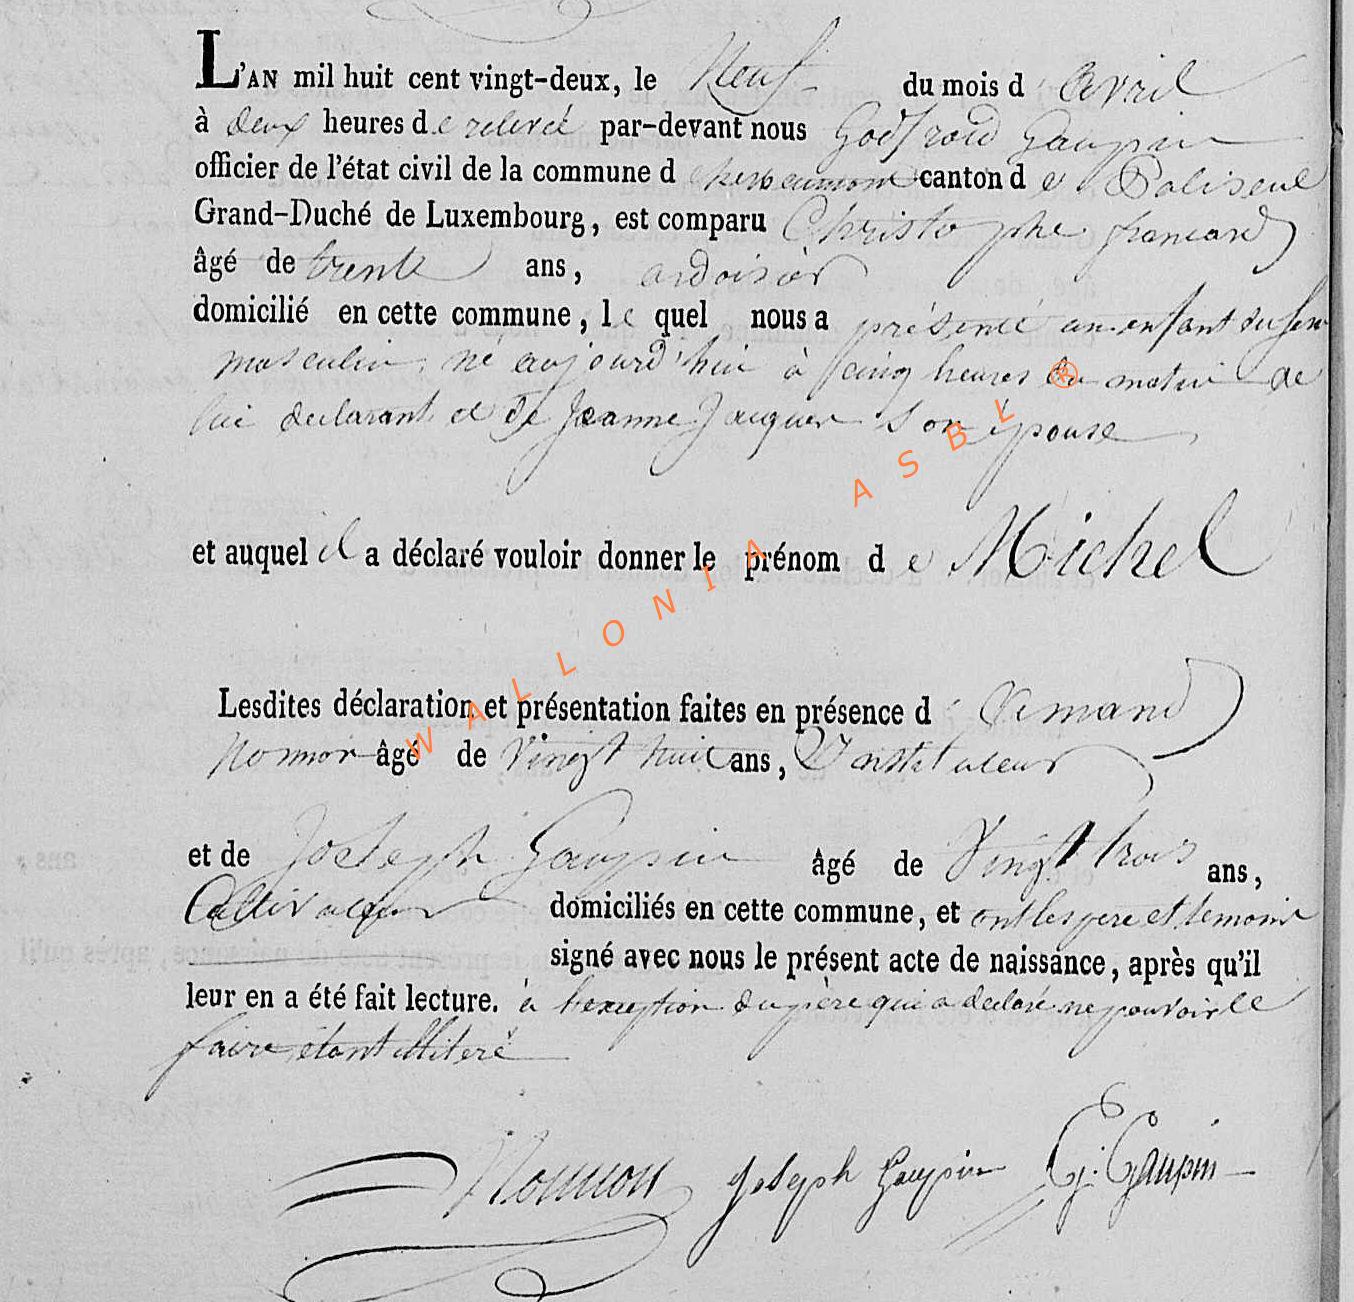 L'AN mil huit cent vingt-deux, le Neuf du mois d'avril
à deux heures de relevée par-devant nous Godfroid Gaupin
officier de l'état civil de la commune d'herbeumont canton de Paliseul
Grand-Duché de Luxembourg, est comparu Christophe francard
âgé de trente ans, ardoisier
domicilié en cette commune, le quel nous a présenté un enfant du sexe
masculin, né aujourd'hui à cinq heures du matin de
lui declarant et de Jeanne Jacques son épouse
et auquel il a déclaré vouloir donner le prénom de Michel
Lesdites déclaration et présentation faites en présence d'
âgé de vingt huit ans, Instituteur
et de Joseph Gaupin âgé de Vingt trois ans,
Cultivateur domiciliés en cette commune, et ont les pere et temoins
signé avec nous le présent acte de naissance, après qu'il
leur en a été fait lecture. à l'exception du père qui a declaré ne pouvoir le
faire étant illiteré
Joseph Gaupin G: Gaupin
WALLONIA ASBL ®